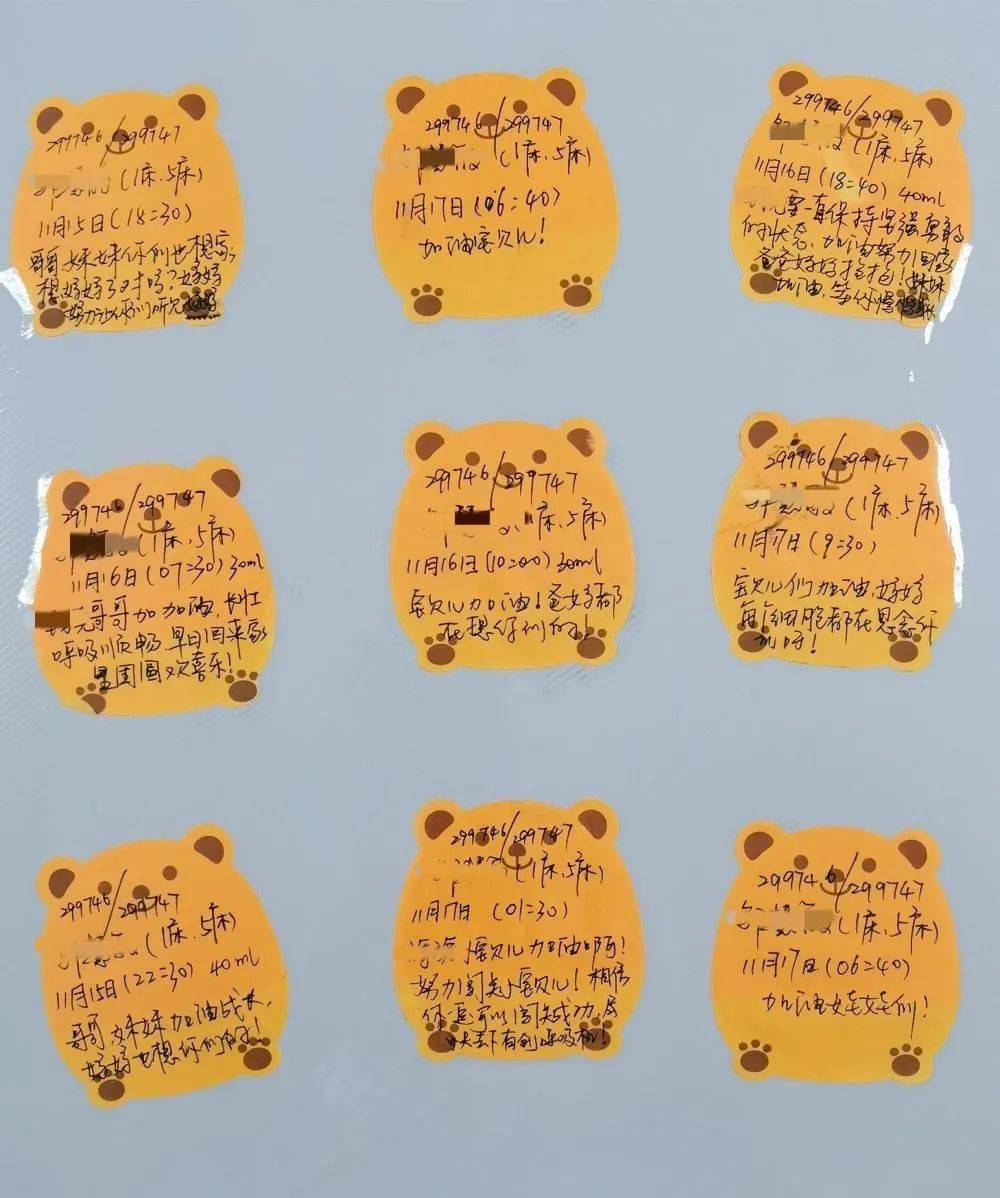 299746/299747
(1床、5床)
11月15日(18:30)
哥哥妹妹你们也想家,
想妈妈了对吗?好好
努力
299746/299747
(1床、5床)
11月17日(06:40)
加油宝贝儿!
299746/299747
(1床、5床)
11月16日(18:40) 40ml
要一直保持坚强勇敢
的状态,加油努力回家
爸爸妈妈抱抱!妹妹
加油,等你慢慢
299746/299747
(1床、5床)
11月16日(07:30) 30ml
元哥哥加加油,长江
呼吸顺畅,早日回来家
里团圆欢喜乐!
299746/299747
1床、5床)
11月16日(10:00) 30ml
宝贝儿加油!爸妈都
在想你们的!
299746/299747
(1床、5床)
11月17日(9:30)
宝贝儿们加油,妈妈
每个细胞都在思念你
们呀!
299746/299747
(1床、5床)
11月15日(22:30) 40ml
哥哥、妹妹加油成长,
妈妈也想你们的!
299746/299747
(1床、5床)
11月17日 (01:30)
宝贝儿加油啊!
努力闯关小宝贝儿!相信
你是可以闯关成功,尽
快去下有创呼吸机!
299746/299747
(1床、5床)
11月17日(06:40)
加油娃娃们!